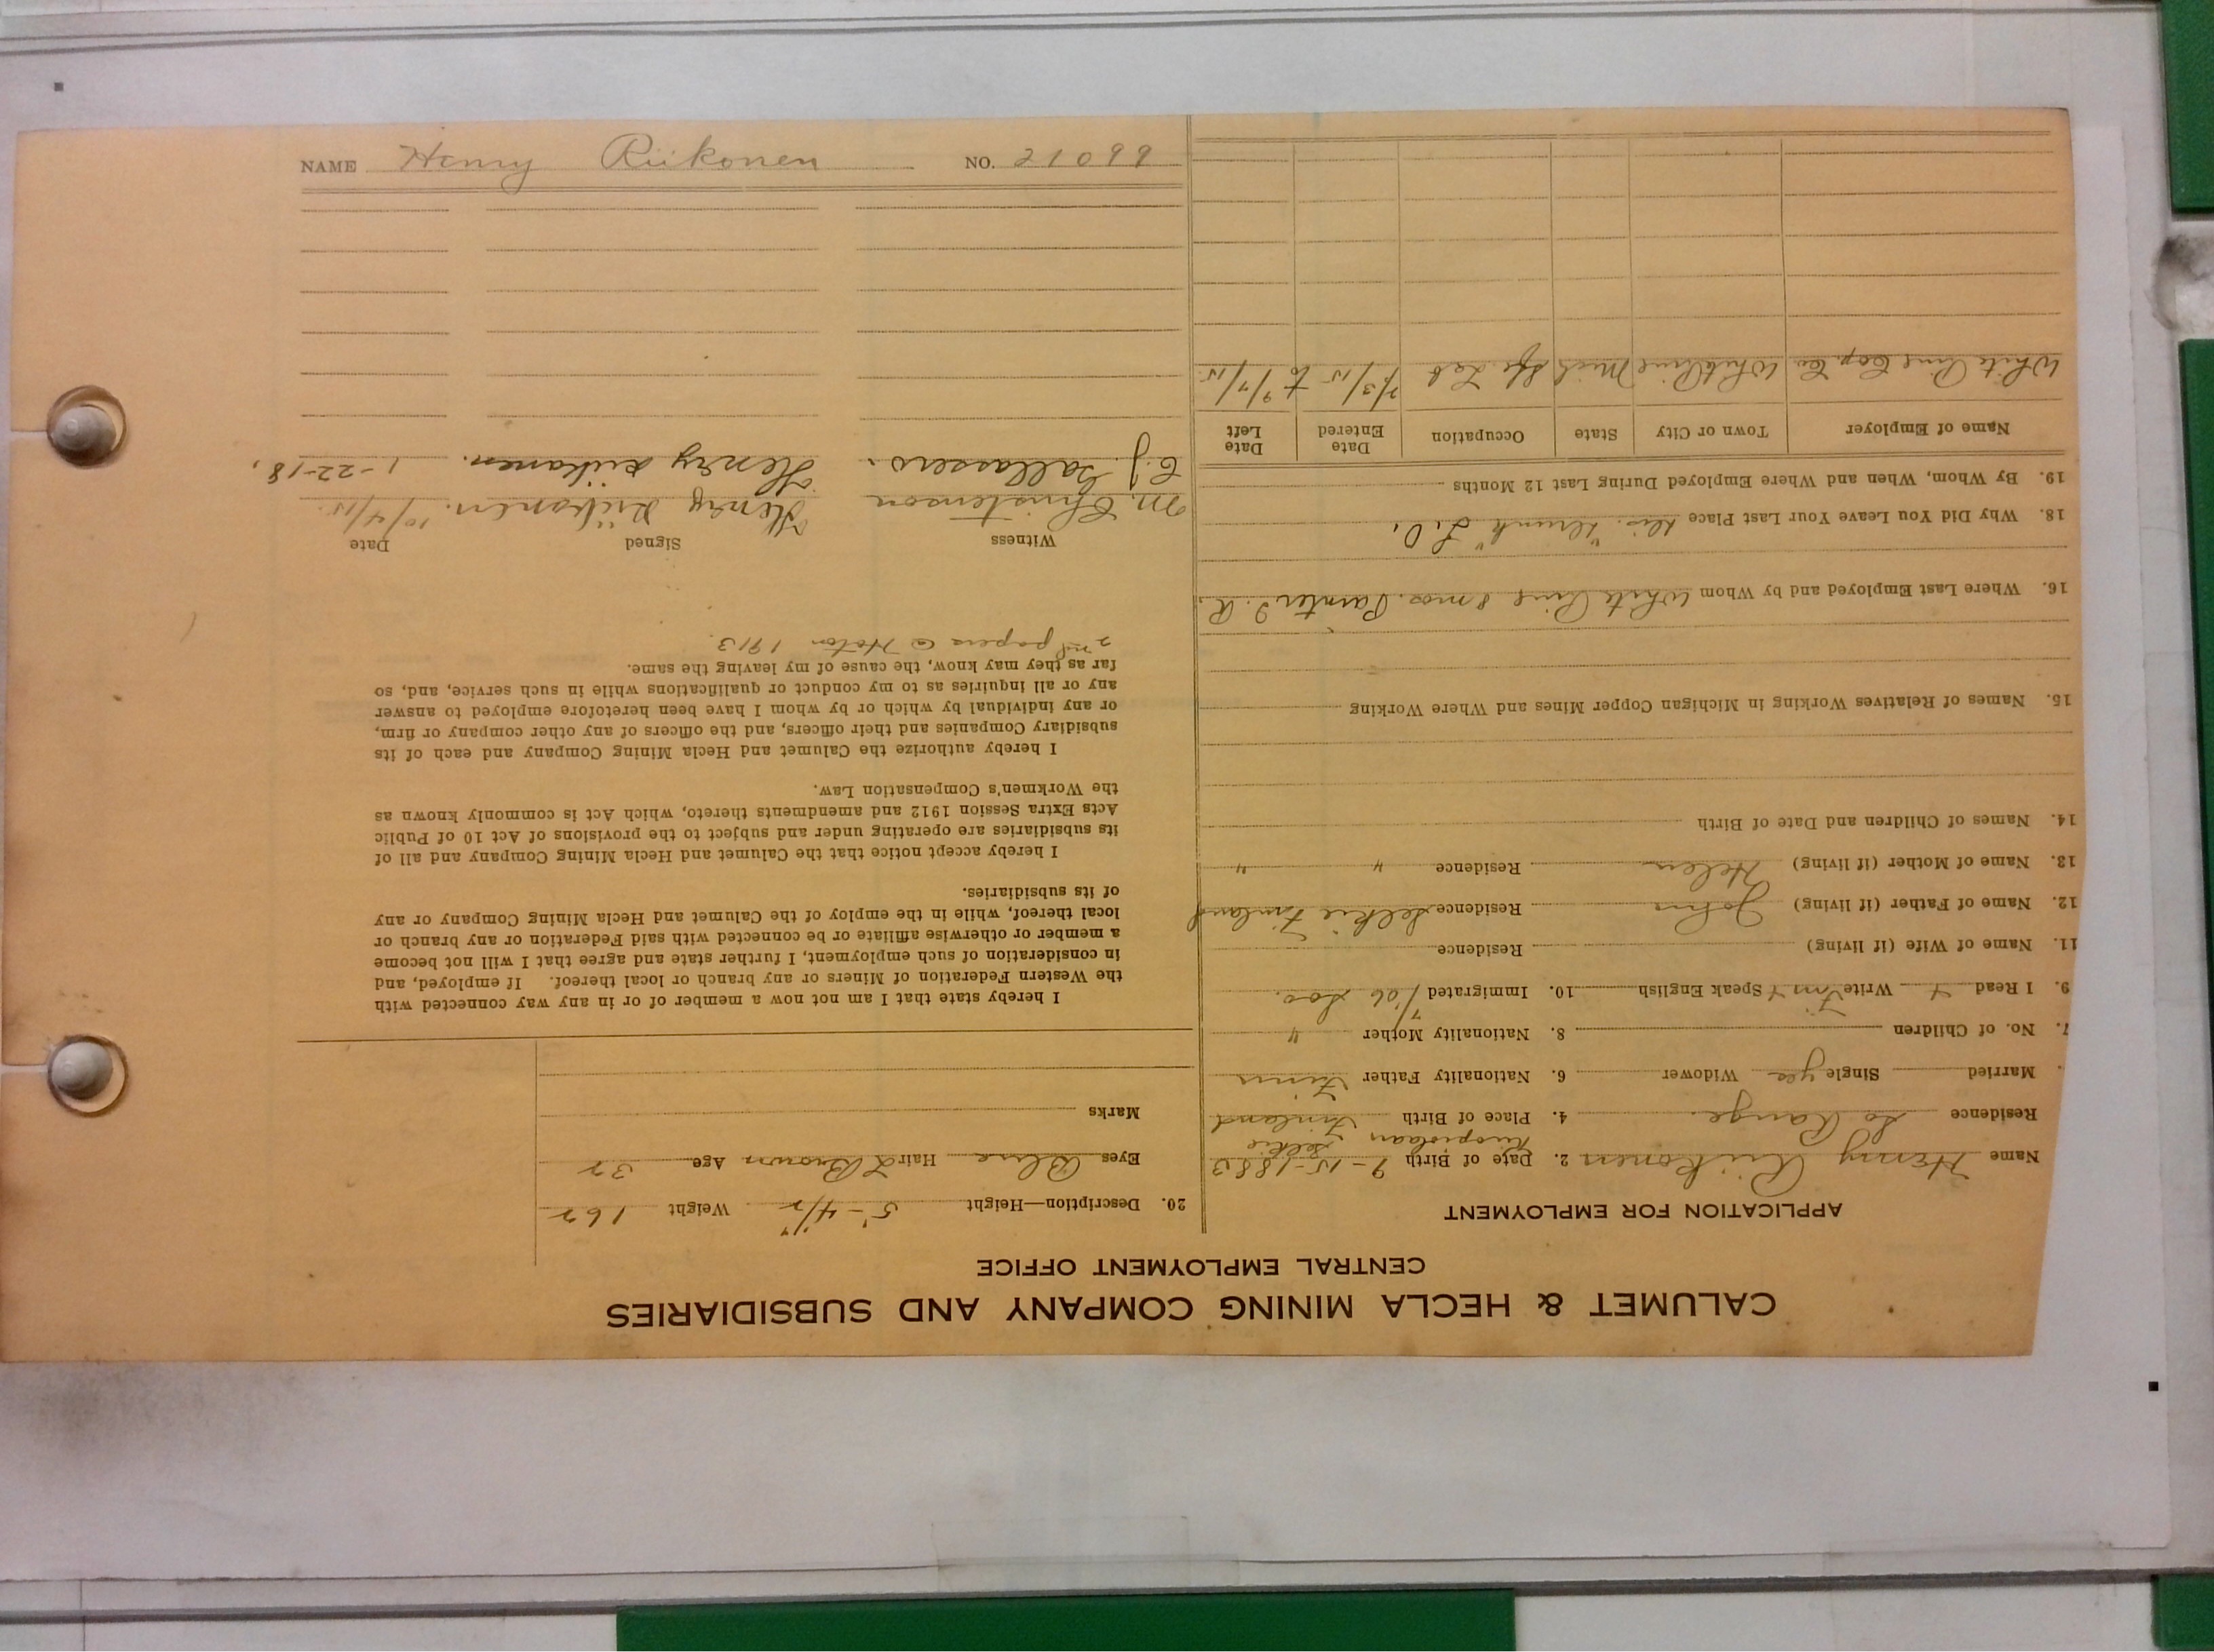 CALUMET & HECLA MINING COMPANY AND SUBSIDIARIES
CENTRAL EMPLOYMENT OFFICE
APPLICATION FOR EMPLOYMENT
Name Henry Riikonen 2. Date of Birth 9-15-1883
Selkie
Residence So Range. 4. Place of Birth Finland
Married Single yes Widower 6. Nationality Father Finn
7. No. of Children 8. Nationality Mother "
9. I Read Write Finn Speak English 10. Immigrated 7/06 Soo.
11. Name of Wife (if living) Residence
12. Name of Father (if living) John Residence Selkie Finland
13. Name of Mother (if living) Helen Residence " "
14. Names of Children and Date of Birth
15. Names of Relatives Working in Michigan Copper Mines and Where Working
16. Where Last Employed and by Whom White Pine 8 mos. Painter
18. Why Did You Leave Your Last Place Dis. "Drunk"
19. By Whom, When and Where Employed During Last 12 Months
Name of Employer Town or City State Occupation Date Entered Date Left
White Pine Cop. Co. White Pine Mich Sfc. Lab 7/3/15 to 9/7/15
20. Description—Height 5'-4 1/2" Weight 162
Eyes Blue Hair L Brown Age 32
Marks
I hereby state that I am not now a member of or in any way connected with
the Western Federation of Miners or any branch or local thereof. If employed, and
in consideration of such employment, I further state and agree that I will not become
a member or otherwise affiliate or be connected with said Federation or any branch or
local thereof, while in the employ of the Calumet and Hecla Mining Company or any
of its subsidiaries.
I hereby accept notice that the Calumet and Hecla Mining Company and all of
its subsidiaries are operating under and subject to the provisions of Act 10 of Public
Acts Extra Session 1912 and amendments thereto, which Act is commonly known as
the Workmen's Compensation Law.
I hereby authorize the Calumet and Hecla Mining Company and each of its
subsidiary Companies and their officers, and the officers of any other company or firm,
or any individual by which or by whom I have been heretofore employed to answer
any or all inquiries as to my conduct or qualifications while in such service, and, so
far as they may know, the cause of my leaving the same.
2nd papers @ Hoton 1913.
Witness Signed Date
M. Christenson Henry Riikonen. 10/4/15
E. J. Henry Riikonen. 1-22-18,
NAME Henry Riikonen NO. 21099